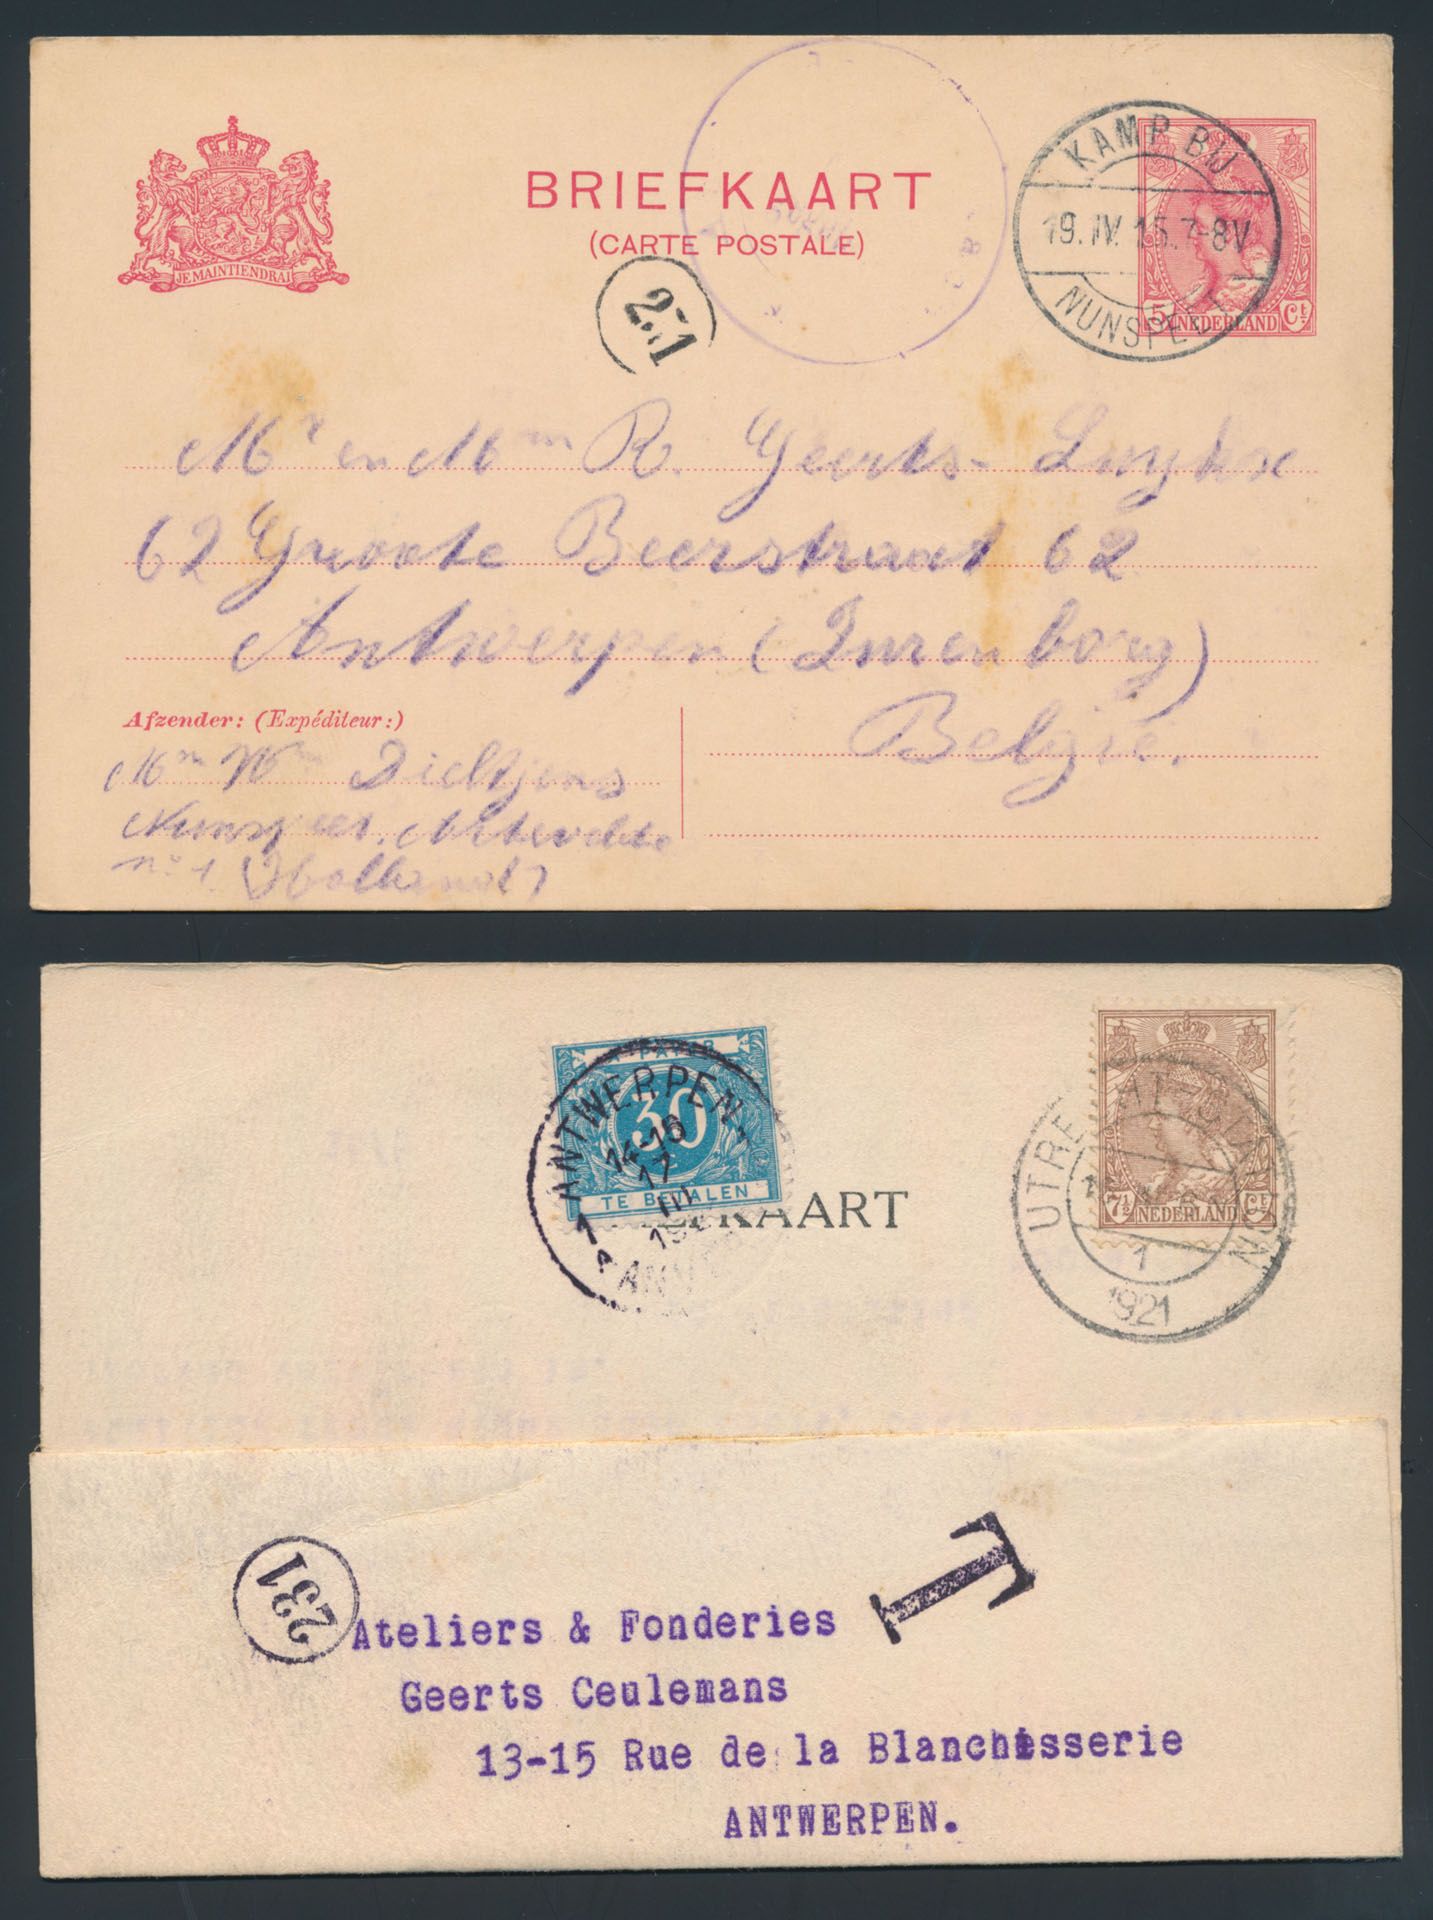 JE MAINTIENDRAI
BRIEFKAART
(CARTE POSTALE)
KAMP BIJ
19.IV.15.7-8V
NUNSPEET
5 NEDERLAND Ct
231
Mr en Mm R. Geerts-
62 Groote Beerstraat 62
Antwerpen (Zurenborg)
België.
Afzender: (Expéditeur:)
Mm Wm Dieltjens
Nunspeet. Artevelde
no 1 (Holland)
A PAYER
30
TE BETALEN
ANTWERPEN
14-16
17
III
KAART
7½ NEDERLAND Ct
1
1921
T
231
Ateliers & Fonderies
Geerts Ceulemans
13-15 Rue de la Blanchisserie
ANTWERPEN.